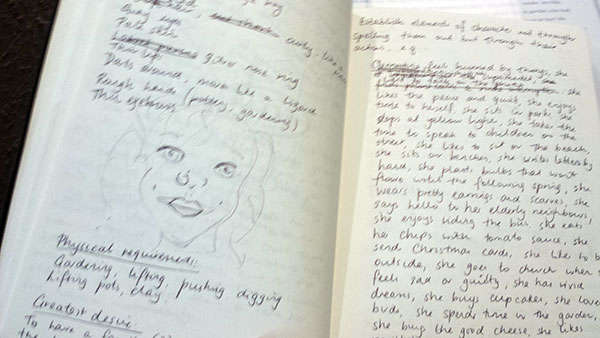 curly, like a
Grey eyes
Pale skin
Thin lips
silver nose ring
Darts around, moves like a lizard
Rough hands (pottery, gardening)
Thin eyebrows
Physical requirements:
Gardening, lifting, pushing, digging
Lifting pots, clay
Greatest desire:
To have a
Establish elements of character not through
spelling them out but through their
actions, e.g:-
feel hurried by things, she
she
likes the peace and quiet, she enjoys
time to herself, she sits in parks, she
stops at yellow lights, she takes the
time to speak to children on the
street, she likes to sit on the beach,
she sits on benches, she writes letters by
hand, she plants bulbs that won't
flower until the following spring, she
wears pretty earrings and scarves, she
says hello to her elderly neighbours,
she enjoys riding the bus, she eats
her chips with tomato sauce, she
send Christmas cards, she like to b
outside, she goes to church when s
feels sad or guilty, she has vivid
dreams, she buys cupcakes, she love
birds, she spends time in the garden,
she buys the good cheese, she likes